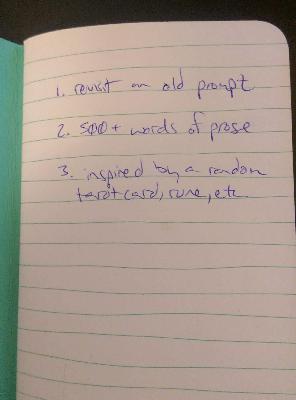 1. revisit an old prompt
2. 500+ words of prose
3. inspired by a random
tarot card, rune, etc.